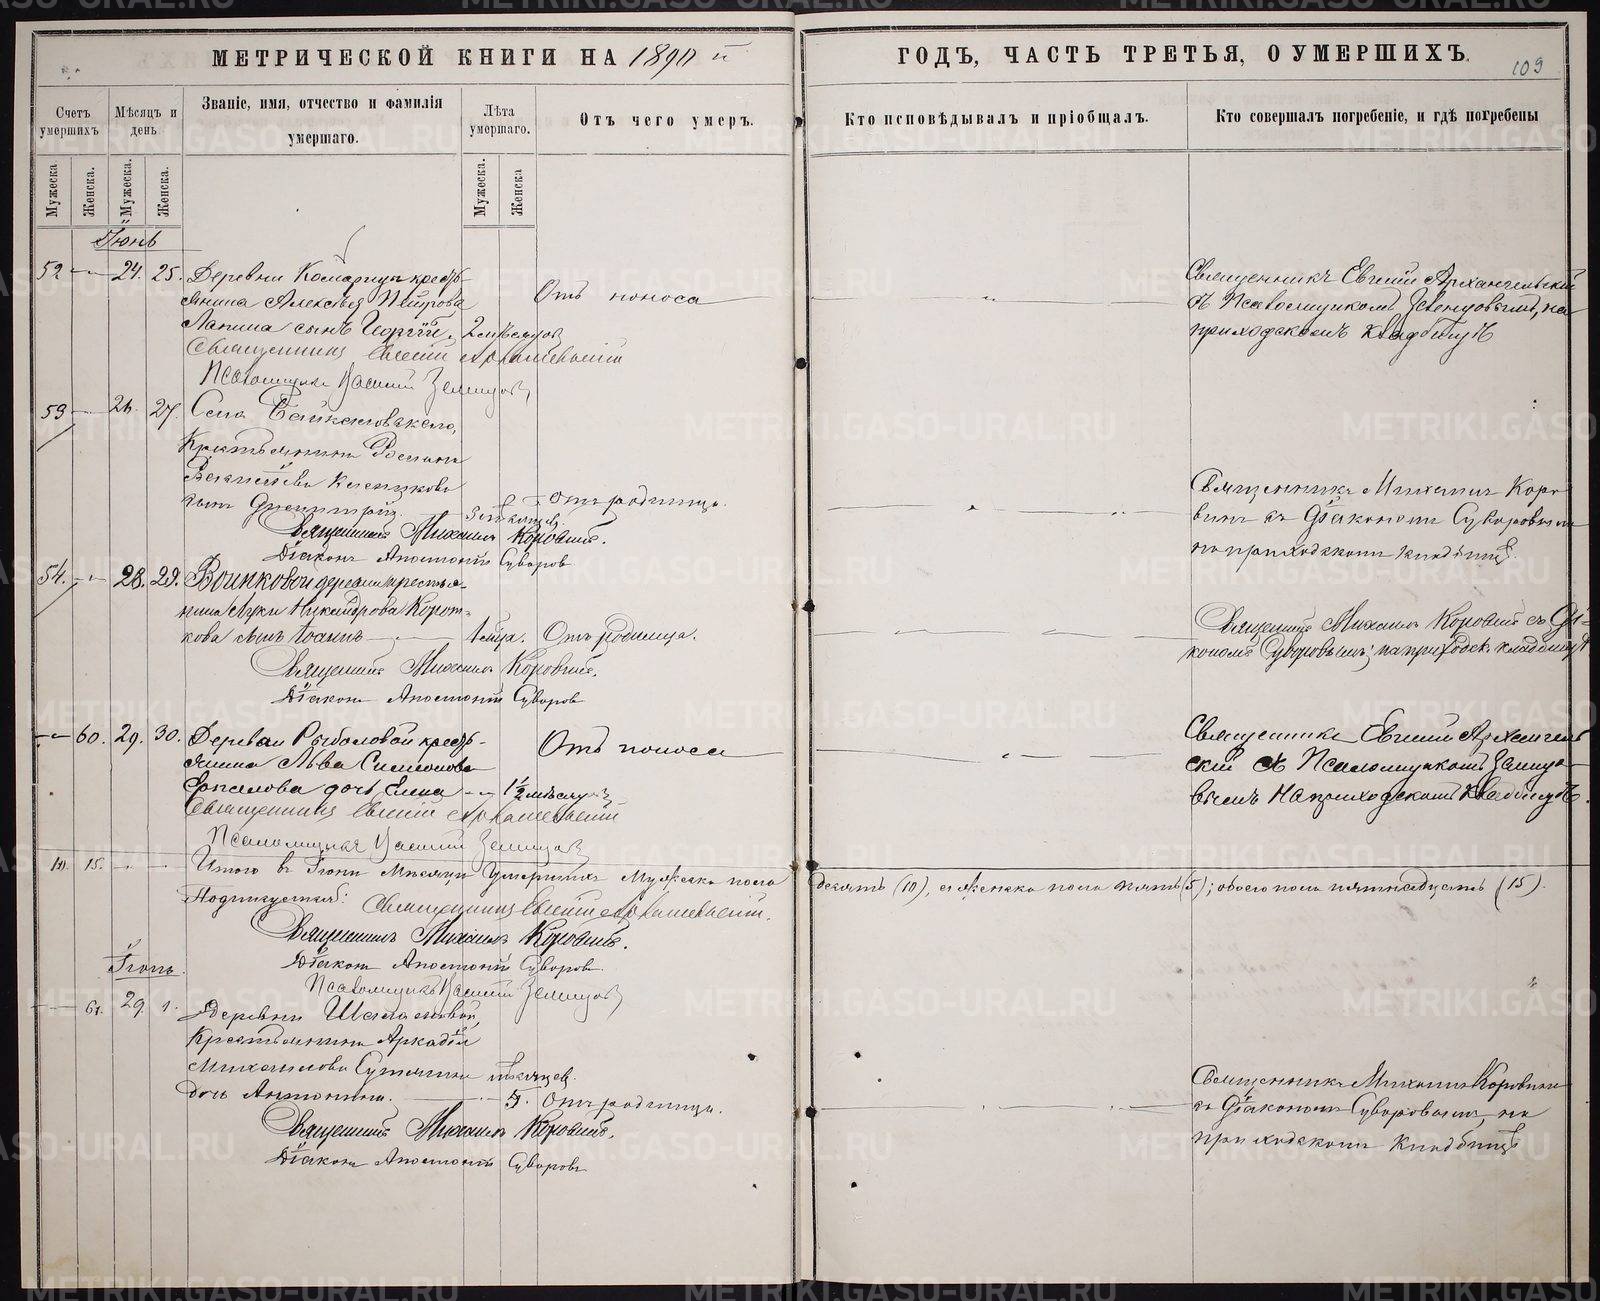 МЕТРИЧЕСКОЙ КНИГИ НА 1890 й
ГОДЪ, ЧАСТЬ ТРЕТЬЯ, О УМЕРШИХЪ.
109
Счетъ умершихъ
Мѣсяцъ и день
Званіе, имя, отчество и фамилія умершаго.
Лѣта умершаго.
Отъ чего умеръ.
Кто исповѣдывалъ и пріобщалъ.
Кто совершалъ погребеніе, и гдѣ погребены
Мужеска.
Женска.
Мужеска.
Женска.
Мужеска.
Женска
Іюнь
52 24. 25. Деревни кресть-
янина Алексѣя Петрова
Лапина сынъ Георгій. 2 мѣсяцов
Отъ поноса
Священникъ Евгеній Архангельскій
съ Псаломщикомъ на
приходскомъ кладбищѣ
Священникъ Евгеній Архангельскій
Псаломщикъ Василій
53 27. Села Байкаловскаго,
Крестьянина Романа
сынъ Димитрій. 3 мѣсяцев
Отъ родимца.
Священникъ Михаилъ Коро-
винъ съ Діакономъ Суворовымъ
на приходскомъ кладбищѣ.
Священникъ Михаилъ Коровинъ.
Діаконъ Аполлоній Суворов
54. 28. 29. деревни крестья-
нина Луки Никандрова Корот-
кова сынъ Іоаннъ 1 мѣся. Отъ родимца.
Священникъ Михаилъ Коровинъ съ Ді-
кономъ Суворовымъ, на приходск. кладбищѣ
Священникъ Михаилъ Коровинъ.
Діаконъ Аполлоній Суворов
60. 29. 30. Деревни Рыболовой кресть-
янина Льва Симеонова
дочь Елена 1½ мѣсяца
Отъ поноса
Священникъ Евгеній Архангель-
скій съ Псаломщикомъ
на приходскомъ кладбищѣ.
Священникъ Евгеній Архангельскій
Псаломщикъ Василій
10. 15. Итого в Іюнѣ Мѣсяцѣ Умершихъ Мужеска пола десять (10), а женска пола пять (5); обоего пола пятнадцать (15).
Подписуемся: Священникъ Евгеній Архангельскій.
Священникъ Михаилъ Коровинъ.
Діаконъ Аполлоній Суворов.
Псаломщикъ Василій
61. 29. 1. Деревни
Крестьянина Аркадія
Михайлова мѣсяцев.
дочь Антонина. 5. Отъ родимца.
Священникъ Михаилъ Коровинъ
съ Діакономъ Суворовымъ на
приходскомъ кладбищѣ
Священникъ Михаилъ Коровинъ.
Діаконъ Аполлоній Суворов
METRIKI.GASO-URAL.RU